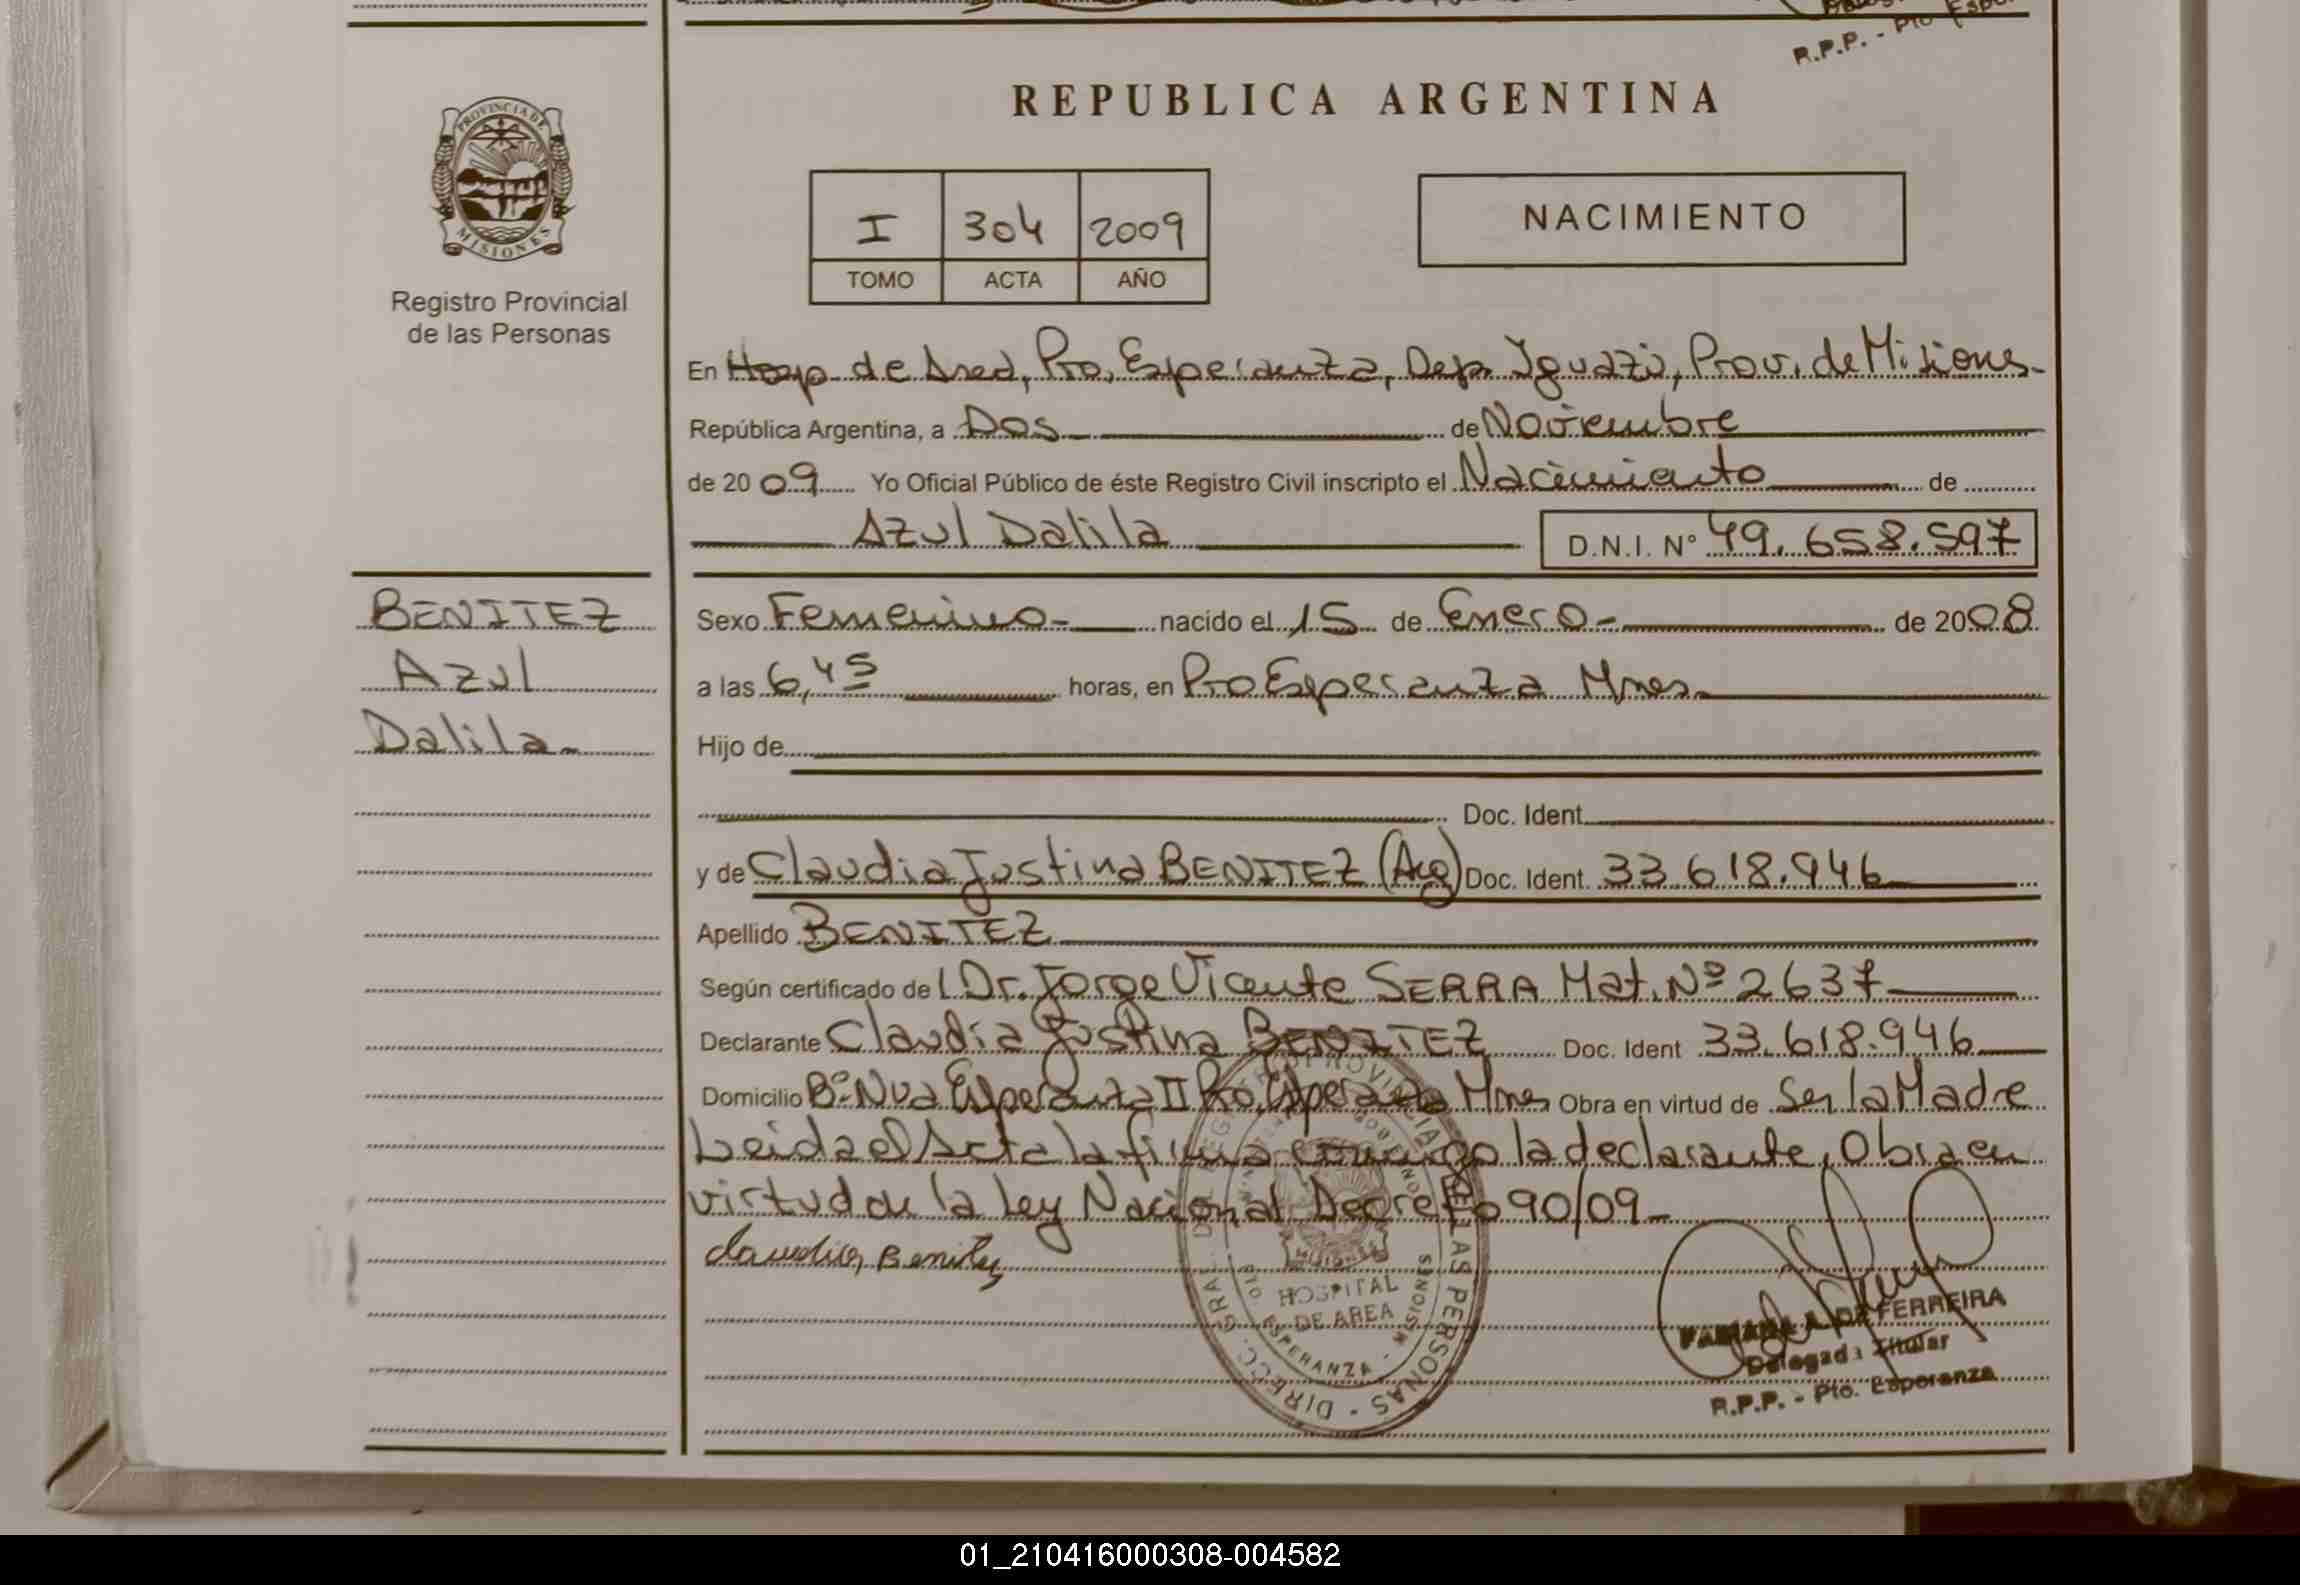 R.P.P. - Pto Espe
PROVINCIA DE
MISIONES
Registro Provincial
de las Personas
REPUBLICA ARGENTINA
I 304 2009
TOMO ACTA AÑO
NACIMIENTO
En Hosp de Area, Pto. Esperanza, Dep. Iguazú, Prov. de Misiones.-
República Argentina, a Dos de Noviembre
de 2009 Yo Oficial Público de éste Registro Civil inscripto el Nacimiento de
Azul Dalila D.N.I. N° 49.658.597
BENITEZ
Azul
Dalila.-
Sexo Femenino- nacido el 15 de Enero- de 2008
a las 6,45 horas, en Pto Esperanza Mnes.
Hijo de
Doc. Ident.
y de Claudia Justina BENITEZ (Arg) Doc. Ident. 33.618.946
Apellido BENITEZ
Según certificado de l Dr. Jorge Vicente SERRA Mat. Nº 2637
Declarante Claudia Justina BENITEZ Doc. Ident 33.618.946
Domicilio Bº Nva Esperanza II Pto. Esperanza Mnes Obra en virtud de Ser la Madre
Leida el Acta la firma conmigo la declarante, Obra en
virtud de la Ley Nacional Decreto 90/09-
Claudia, Benitez
DIRECC. GRAL. DEL REGISTRO PROVINCIAL DE LAS PERSONAS
HOSPITAL
DE AREA
ESPERANZA - MISIONES
MISIONES
DE FERREIRA
Delegada Titular
R.P.P. - Pto. Esperanza
01_210416000308-004582